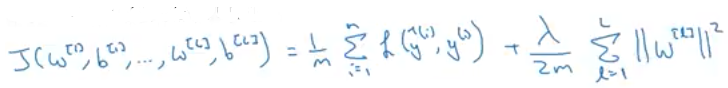 J(ω^{[1]}, b^{[1]}, ..., ω^{[L]}, b^{[L]}) = \frac{1}{m} \sum_{i=1}^{n} ℒ(ŷ^{(i)}, y^{(i)}) + \frac{λ}{2m} \sum_{l=1}^{L} ||ω^{[l]}||^2